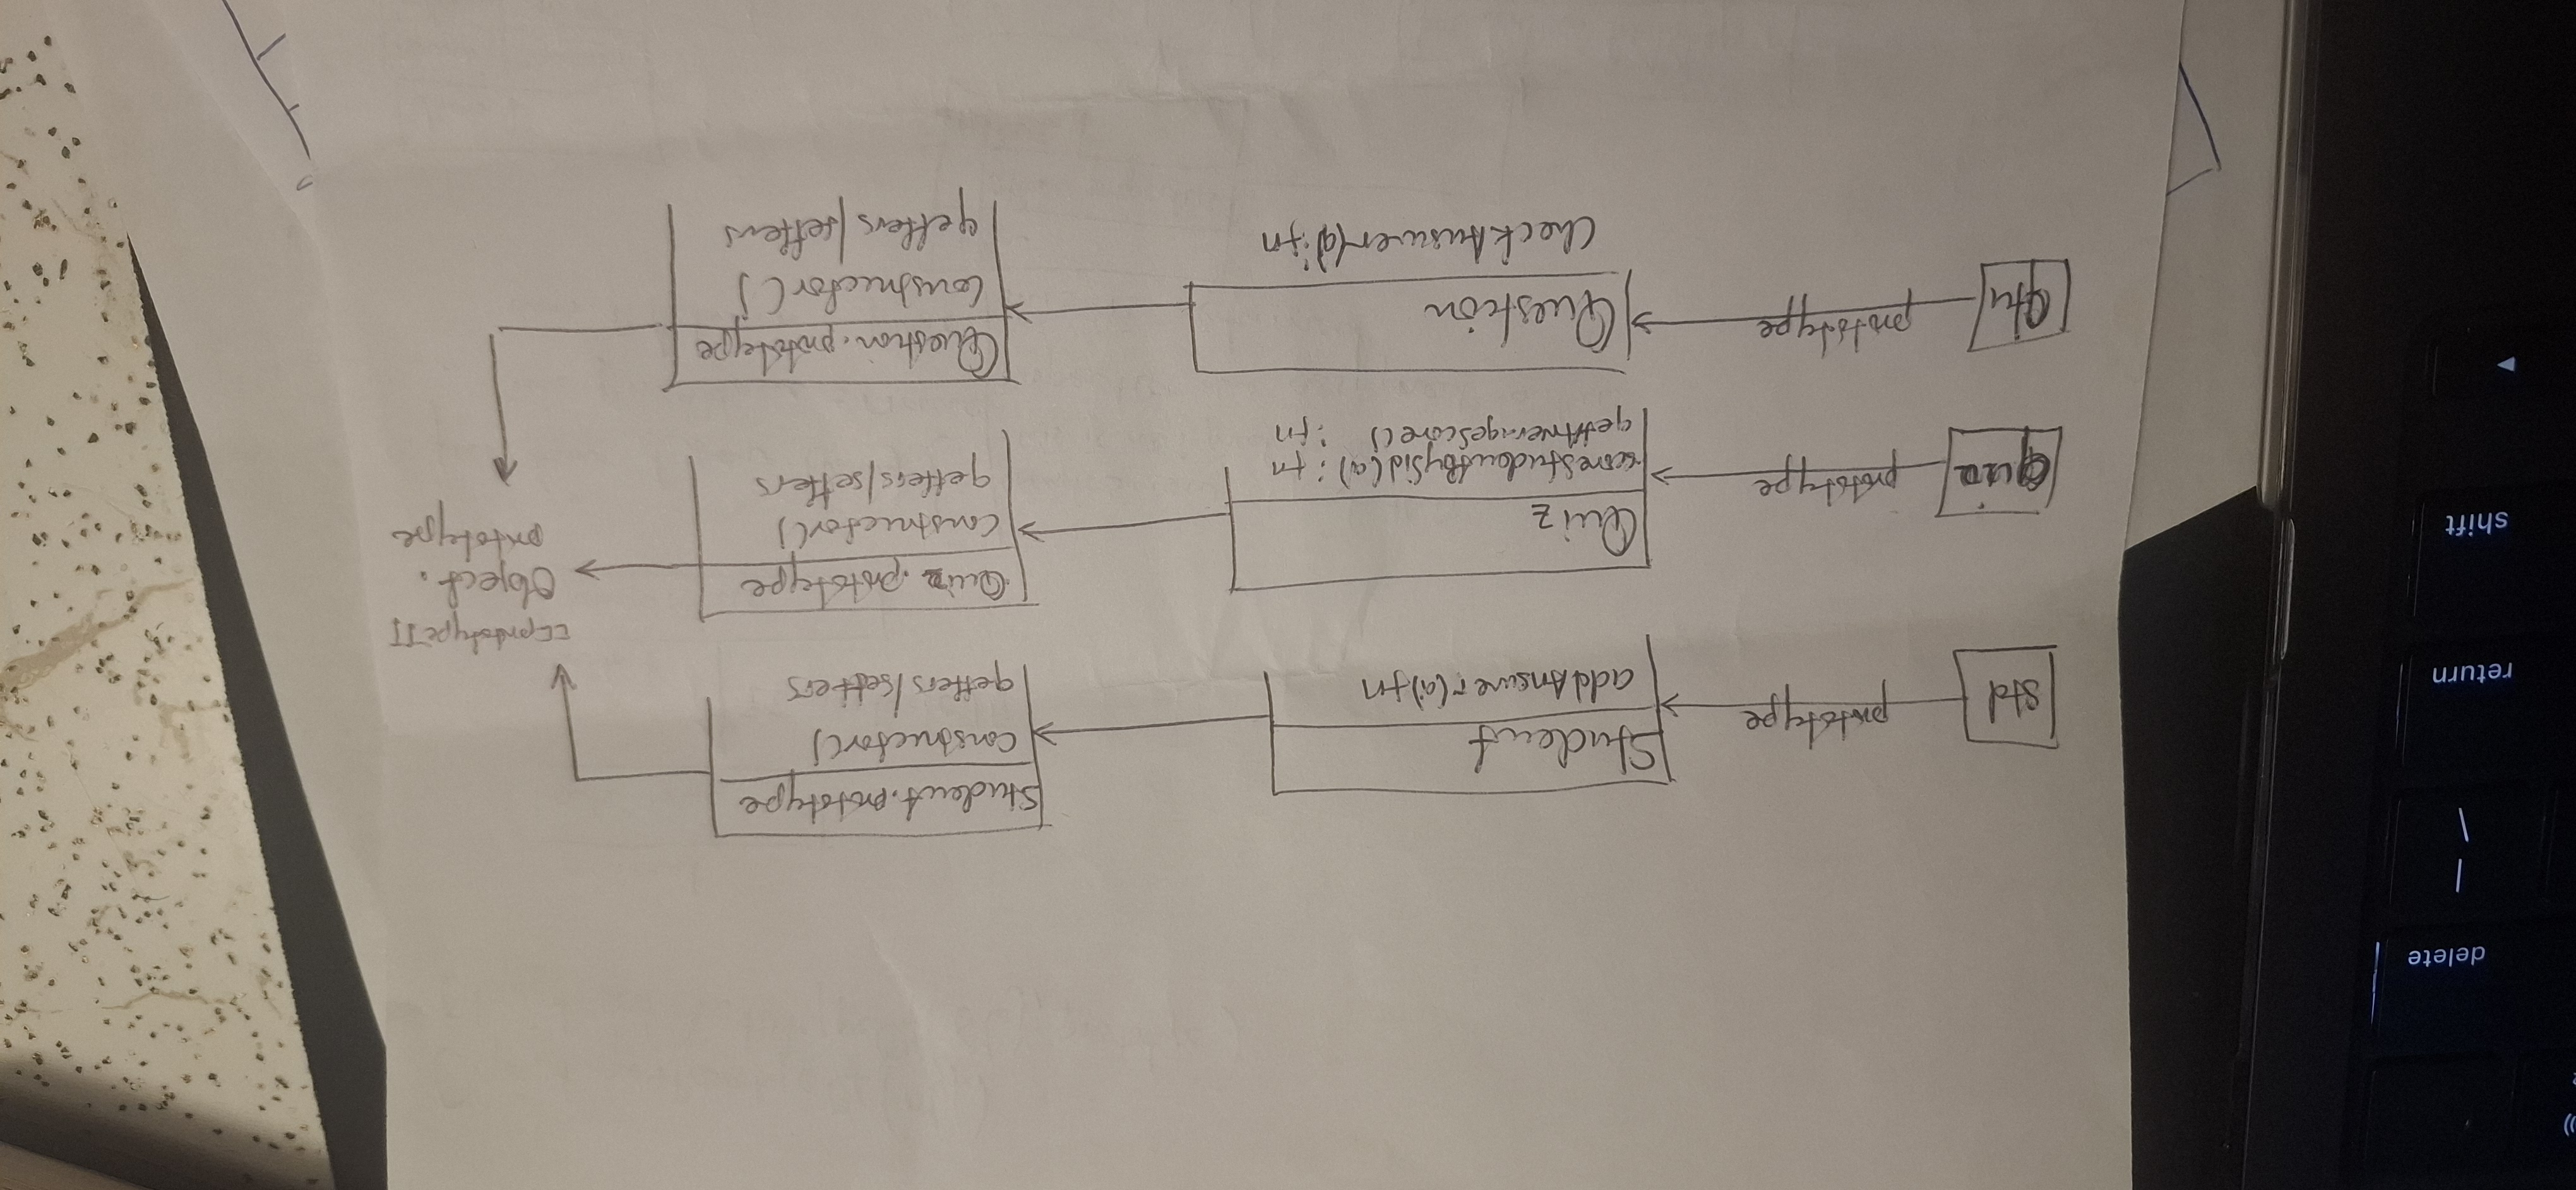 std
prototype
Student
addAnswer(a):fn
Student.prototype
constructor()
getters/setters
[[prototype]]
Object.
prototype
quiz
prototype
Quiz
scoreStudentBySid(a) : fn
getAverageScore() : fn
Quiz.prototype
constructor()
getters/setters
prototype
Question
checkAnswer(a):fn
Question.prototype
constructor()
getters/setters
delete
|
\
return
shift